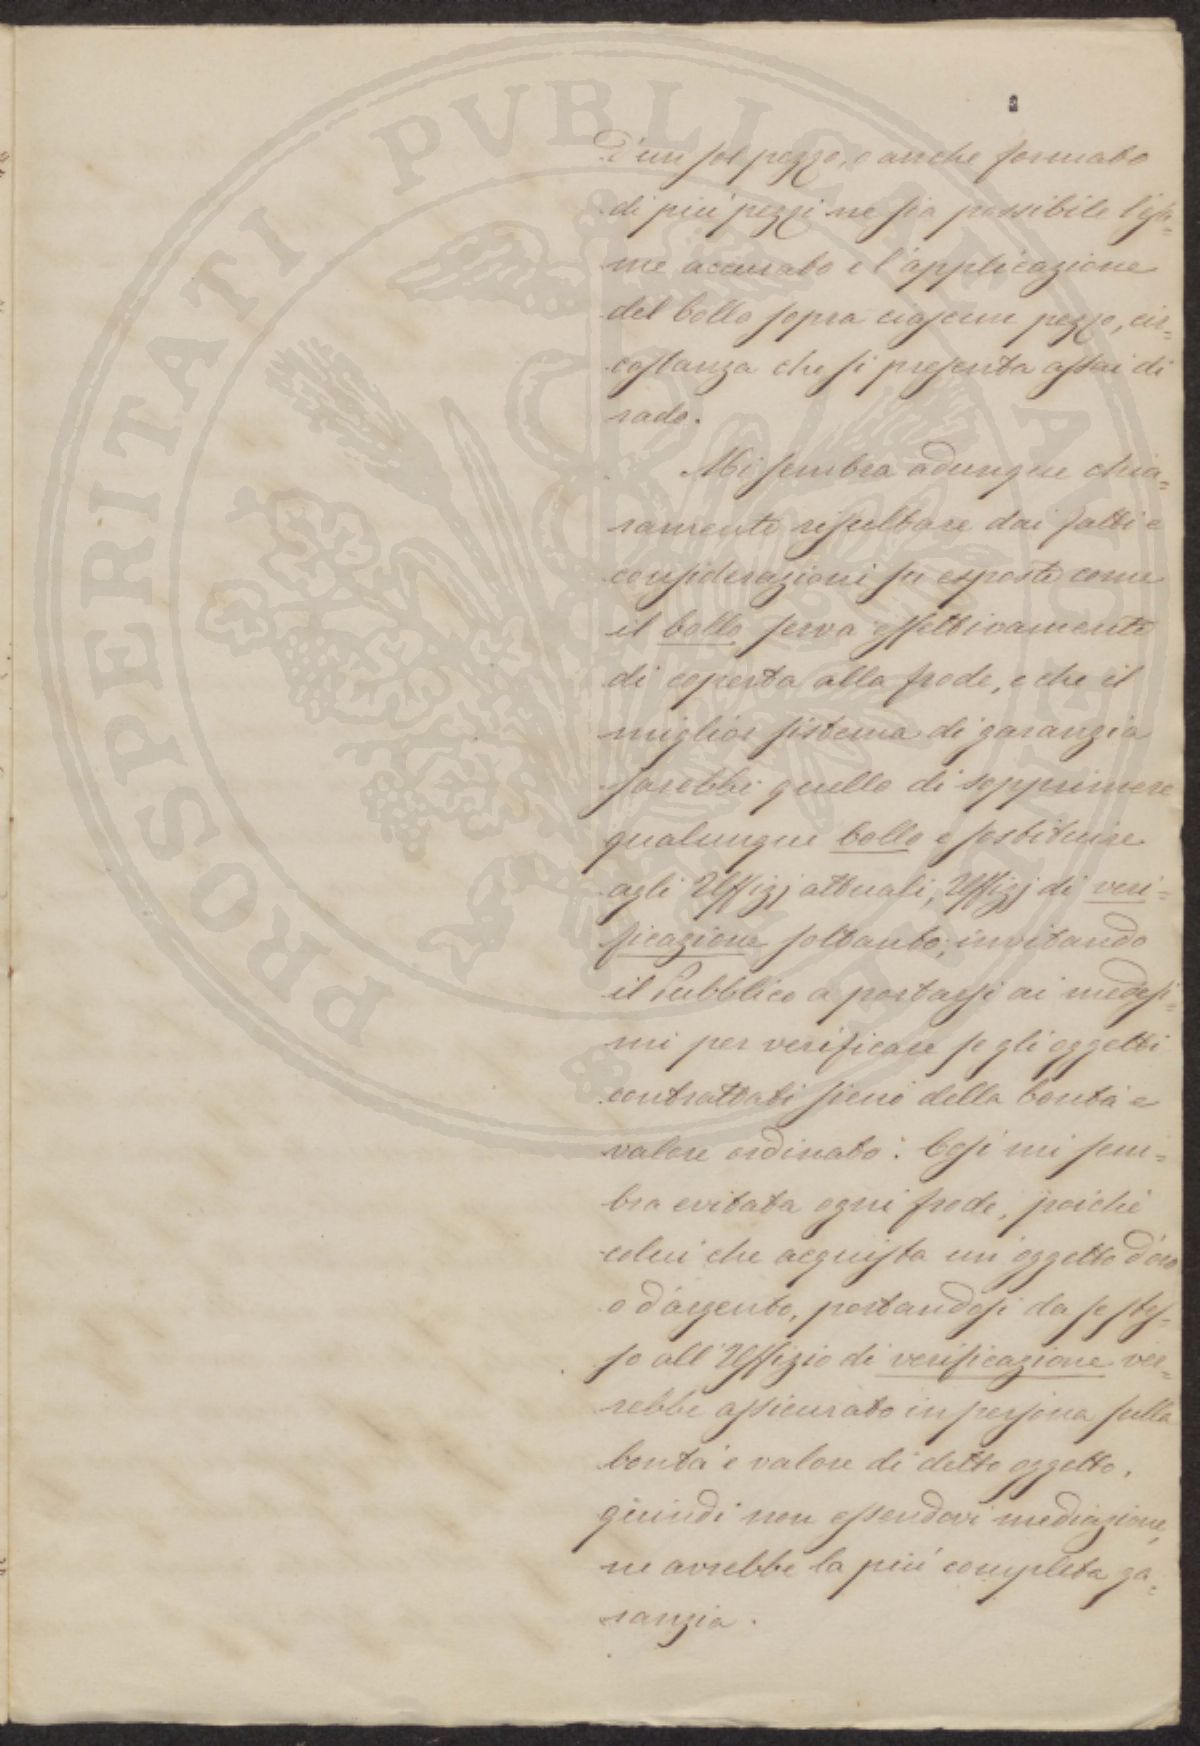 PROSPERITATI PVBLICAE AVGENDAE
d'un sol pezzo, o anche formato
di più pezzi ne sia possibile l'esa=
me accurato e l'applicazione
del bollo sopra ciascun pezzo, cir=
costanza che si presenta assai di
rado.
Mi sembra adunque chia=
ramente risultare dai fatti e
considerazioni su esposte come
il bollo serva effettivamente
di coperta alla frode, e che il
miglior sistema di garanzia
sarebbe quello di sopprimere
qualunque bollo e sostituire
agli Uffizj attuali, Uffizj di veri=
ficazione soltanto, invitando
il Pubblico a portarsi ai medesi=
mi per verificare se gli oggetti
contrattati sieno della bontà e
valore ordinato. Così mi sem=
bra evitata ogni frode, poichè
colui che acquista un oggetto d'oro
o d'argento, portandosi da se stes=
so all'Uffizio di verificazione ver=
rebbe assicurato in persona sulla
bontà e valore di detto oggetto,
quindi non essendovi mediazione,
ne avrebbe la più completa ga=
ranzia.